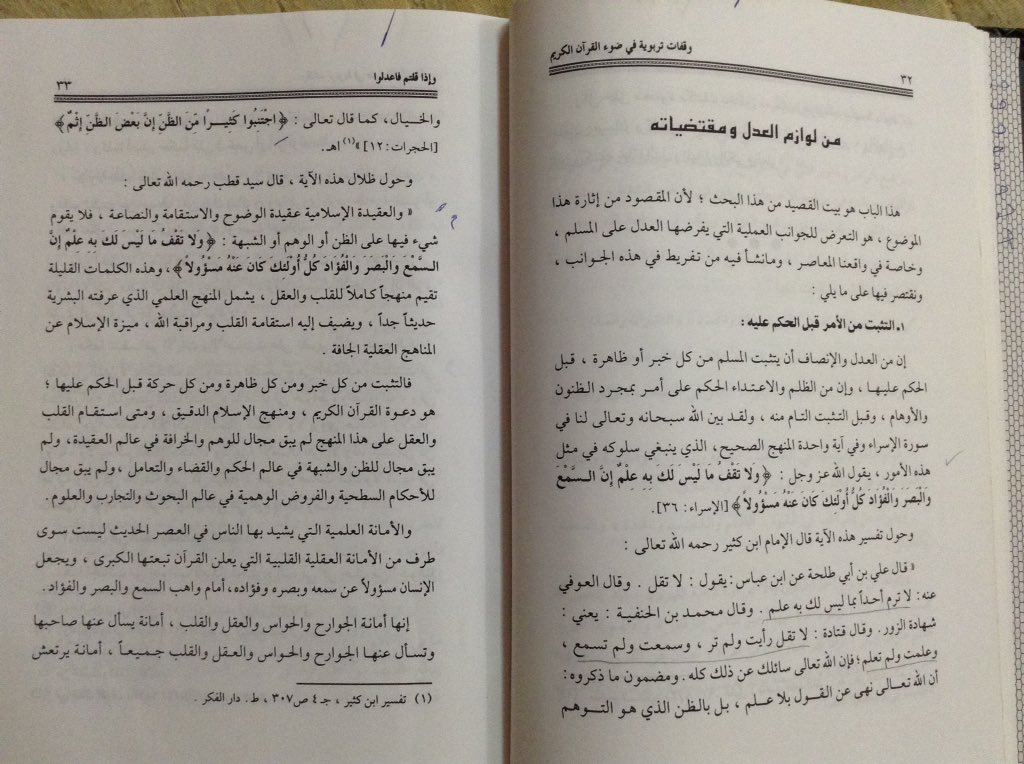 وقفات تربوية في ضوء القرآن الكريم
٣٢
من لوازم العدل ومقتضياته
هذا الباب هو بيت القصيد من هذا البحث ؛ لأن المقصود من إثارة هذا
الموضوع ، هو التعرض للجوانب العملية التي يفرضها العدل على المسلم ،
وخاصة في واقعنا المعاصر ، ومانشأ فيه من تفريط في هذه الجوانب ،
ونقتصر فيها على ما يلي :
١ـ التثبت من الأمر قبل الحكم عليه :
إن من العدل والإنصاف أن يتثبت المسلم من كل خبر أو ظاهرة ، قبل
الحكم عليها ، وإن من الظلم والاعتداء الحكم على أمر بمجرد الظنون
والأوهام ، وقبل التثبت التام منه ، ولقد بين الله سبحانه وتعالى لنا في
سورة الإسراء وفي آية واحدة المنهج الصحيح، الذي ينبغي سلوكه في مثل
هذه الأمور ، يقول الله عز وجل : ﴿ وَلا تَقْفُ مَا لَيْسَ لَكَ بِهِ عِلْمٌ إِنَّ السَّمْعَ
وَالْبَصَرَ وَالْفُؤَادَ كُلُّ أُولَئِكَ كَانَ عَنْهُ مَسْؤُولاً ﴾ [الإسراء: ٣٦].
وحول تفسير هذه الآية قال الإمام ابن كثير رحمه الله تعالى :
« قال علي بن أبي طلحة عن ابن عباس: يقول : لا تقل . وقال العوفي
عنه: لا ترم أحداً بما ليس لك به علم . وقال محمد بن الحنفية : يعني :
شهادة الزور. وقال قتادة : لا تقل رأيت ولم تر ، وسمعت ولم تسمع ،
وعلمت ولم تعلم؛ فإن الله تعالى سائلك عن ذلك كله. ومضمون ما ذكروه:
أن الله تعالى نهى عن القول بلا علم ، بل بالظن الذي هو التوهم
وإذا قلتم فاعدلوا
٣٣
والخيال، كما قال تعالى : ﴿ اجْتَنِبُوا كَثِيرًا مِّنَ الظَّنِّ إِنَّ بَعْضَ الظَّنِّ إِثْمٌ ﴾
[الحجرات: ١٢] »(١) اهـ.
وحول ظلال هذه الآية ، قال سيد قطب رحمه الله تعالى :
« والعقيدة الإسلامية عقيدة الوضوح والاستقامة والنصاعة ، فلا يقوم
شيء فيها على الظن أو الوهم أو الشبهة : ﴿ وَلا تَقْفُ مَا لَيْسَ لَكَ بِهِ عِلْمٌ إِنَّ
السَّمْعَ وَالْبَصَرَ وَالْفُؤَادَ كُلُّ أُولَئِكَ كَانَ عَنْهُ مَسْؤُولاً ﴾، وهذه الكلمات القليلة
تقيم منهجاً كاملاً للقلب والعقل ، يشمل المنهج العلمي الذي عرفته البشرية
حديثاً جداً ، ويضيف إليه استقامة القلب ومراقبة الله ، ميزة الإسلام عن
المناهج العقلية الجافة .
فالتثبت من كل خبر ومن كل ظاهرة ومن كل حركة قبل الحكم عليها ؛
هو دعوة القرآن الكريم ، ومنهج الإسلام الدقيق ، ومتى استقام القلب
والعقل على هذا المنهج لم يبق مجال للوهم والخرافة في عالم العقيدة، ولم
يبق مجال للظن والشبهة في عالم الحكم والقضاء والتعامل ،ولم يبق مجال
للأحكام السطحية والفروض الوهمية في عالم البحوث والتجارب والعلوم.
والأمانة العلمية التي يشيد بها الناس في العصر الحديث ليست سوى
طرف من الأمانة العقلية القلبية التي يعلن القرآن تبعتها الكبرى ، ويجعل
الإنسان مسؤولاً عن سمعه وبصره وفؤاده، أمام واهب السمع والبصر والفؤاد.
إنها أمانة الجوارح والحواس والعقل والقلب ، أمانة يسأل عنها صاحبها
وتسأل عنها الجوارح والحواس والعقل والقلب جميعاً ، أمانة يرتعش
(١) تفسير ابن كثير ، جـ ٤ ص ٣٠٧ ، ط . دار الفكر .